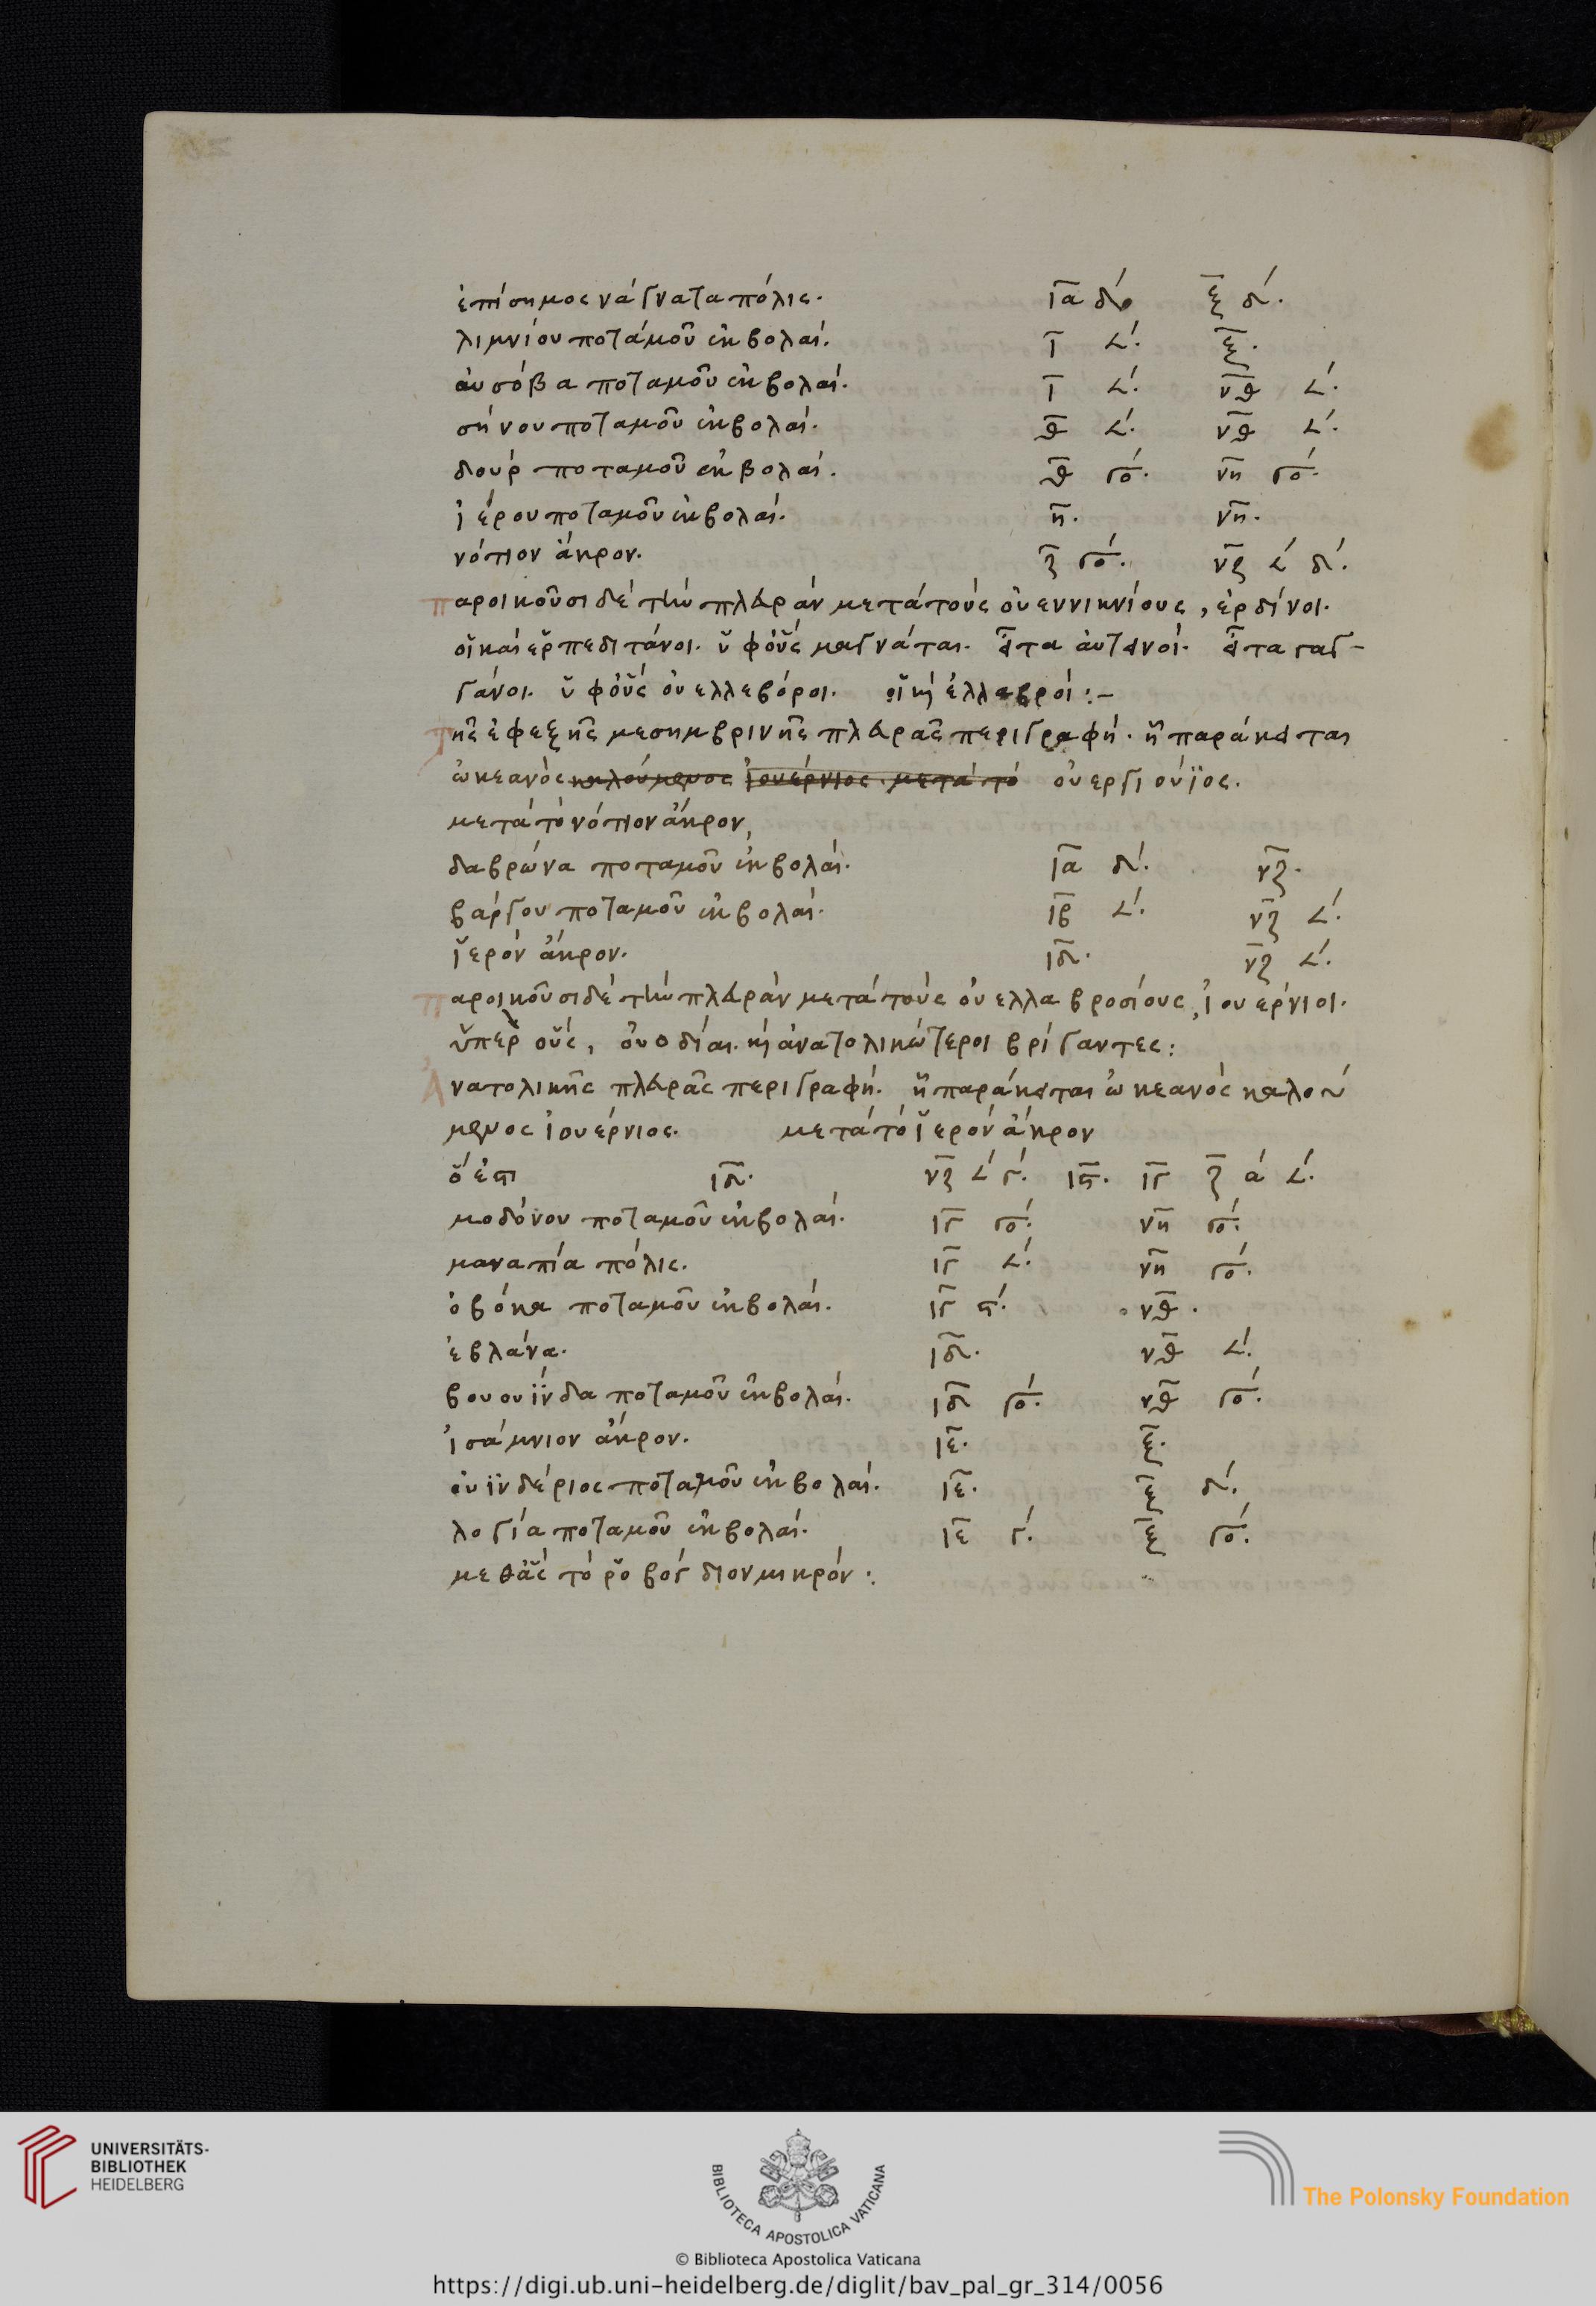 ἐπίσημος νάγνατα πόλις. ια δ΄ ξ δ΄.
λιμνίου ποτάμοῦ ἐκβολαί. ι 𐅵΄. ξ.
ἀυσόβα ποταμοῦ ἐκβολαί. ι 𐅵΄. νθ 𐅵΄.
σήνου ποταμοῦ ἐκβολαί. θ 𐅵΄. νθ 𐅵΄.
δουρ ποταμοῦ ἐκβολαί. θ γο΄. νη γο΄.
ἰέρου ποταμοῦ ἐκβολαί. η. νη.
νότιον ἄκρον. ζ γο΄. νζ 𐅵΄ δ΄.
παροικοῦσι δέ τὴν πλευράν μετά τούς ὀυεννικνίους, ἐρδίνοι.
οἵ καί ἐρπεδιτάνοι. ὑφ' οὕς μαγνάται. εἶτα ἀυτεινοί. εἶτα γαγ-
γάνοι. ὑφ' οὕς ὀυελλεβόροι. οἵ κ(αὶ) ἐλλεβροί :-
τῆς ἐφεξῆς μεσημβρινῆς πλευρᾶς περιγραφή. ἧ παράκειται
ὠκεανὸς καλούμενος ἰουέρνιος. μετά τό ὀυεργιούϊος.
μετά τὸ νότιον ἄκρον,
δαβρώνα ποταμοῦ ἐκβολαί. ια δ΄. νζ.
βάργου ποταμοῦ ἐκβολαί. ιβ 𐅵΄. νζ 𐅵΄.
ἱερόν ἄκρον. ιδ. νζ 𐅵΄.
παροικοῦσι δέ τὴν πλευράν μετά τούς ὀυελλαβροσίους, ἰουέρνιοι.
ὑπέρ οὕς, ὀυοδίαι. κ(αὶ) ἀνατολικώτεροι βρίγαντες :
Ἀνατολικῆς πλευρᾶς περιγραφή. ἧ παράκειται ὠκεανὸς καλού
μενος ἰουέρνιος. μετά τό ἱερόν ἄκρον
ὅ ἐπι ιδ. νζ 𐅵΄ γ΄. ις. ιγ ζ ά 𐅵΄.
μοδόνου ποταμοῦ ἐκβολαί. ιγ γο΄. νη γο΄.
μαναπία πόλις. ιγ 𐅵΄. νη γο΄.
ὀβόκα ποταμοῦ ἐκβολαί. ιγ ς΄. νθ.
ἐβλάνα. ιδ. νθ 𐅵΄.
βουουΐνδα ποταμοῦ ἐκβολαί. ιδ γο΄. νθ γο΄.
ἰσάμνιον ἄκρον. ιε. ξ.
ὀυϊνδέριος ποταμοῦ ἐκβολαί. ιε. ξ δ΄.
λογία ποταμοῦ ἐκβολαί. ιε γ΄. ξ γο΄.
μεθ' ἅς τό ῥοβόγδιον μικρόν :.
UNIVERSITÄTS-
BIBLIOTHEK
HEIDELBERG
BIBLIOTECA APOSTOLICA VATICANA
The Polonsky Foundation
© Biblioteca Apostolica Vaticana
https://digi.ub.uni-heidelberg.de/diglit/bav_pal_gr_314/0056